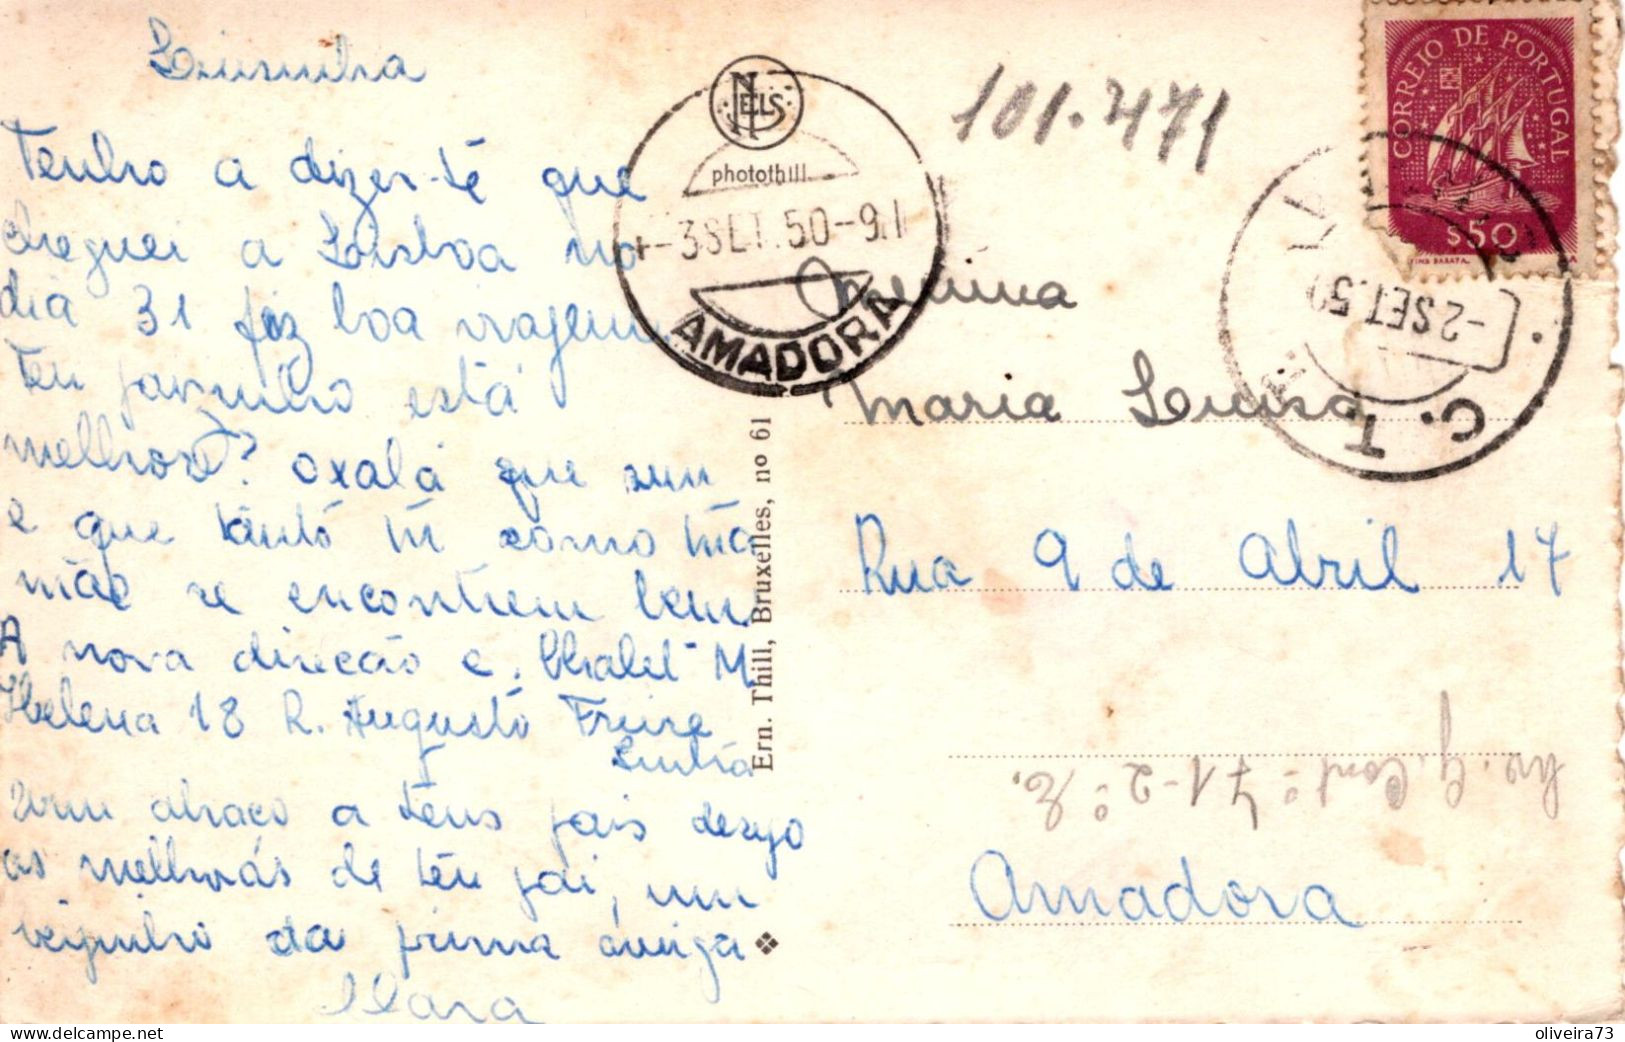 Luisinha
Tenho a dizer-te que
cheguei a Lisboa no
dia 31 fiz boa viagem.
Teu paisinho está
melhor? oxalá que sim
e que tanto tu como tua
mãe se encontrem bem
A nova direcão e. Chalet M.
Helena 18 R. Augusto Freire
Sintra
um abraço a teus pais desejo
as melhorás de teu pai, um
beijinho da prima amiga
Clara
NELS
photothill
-3 SET. 50-9.
AMADORA
Ern. Thill, Bruxelles, nº 61
101.471
CORREIO DE PORTUGAL
$50
C. T.
-2 SET. 50
Menina
Maria Luisa
Rua 9 de Abril 17
71-2.º
Amadora
delcampe.net
oliveira73